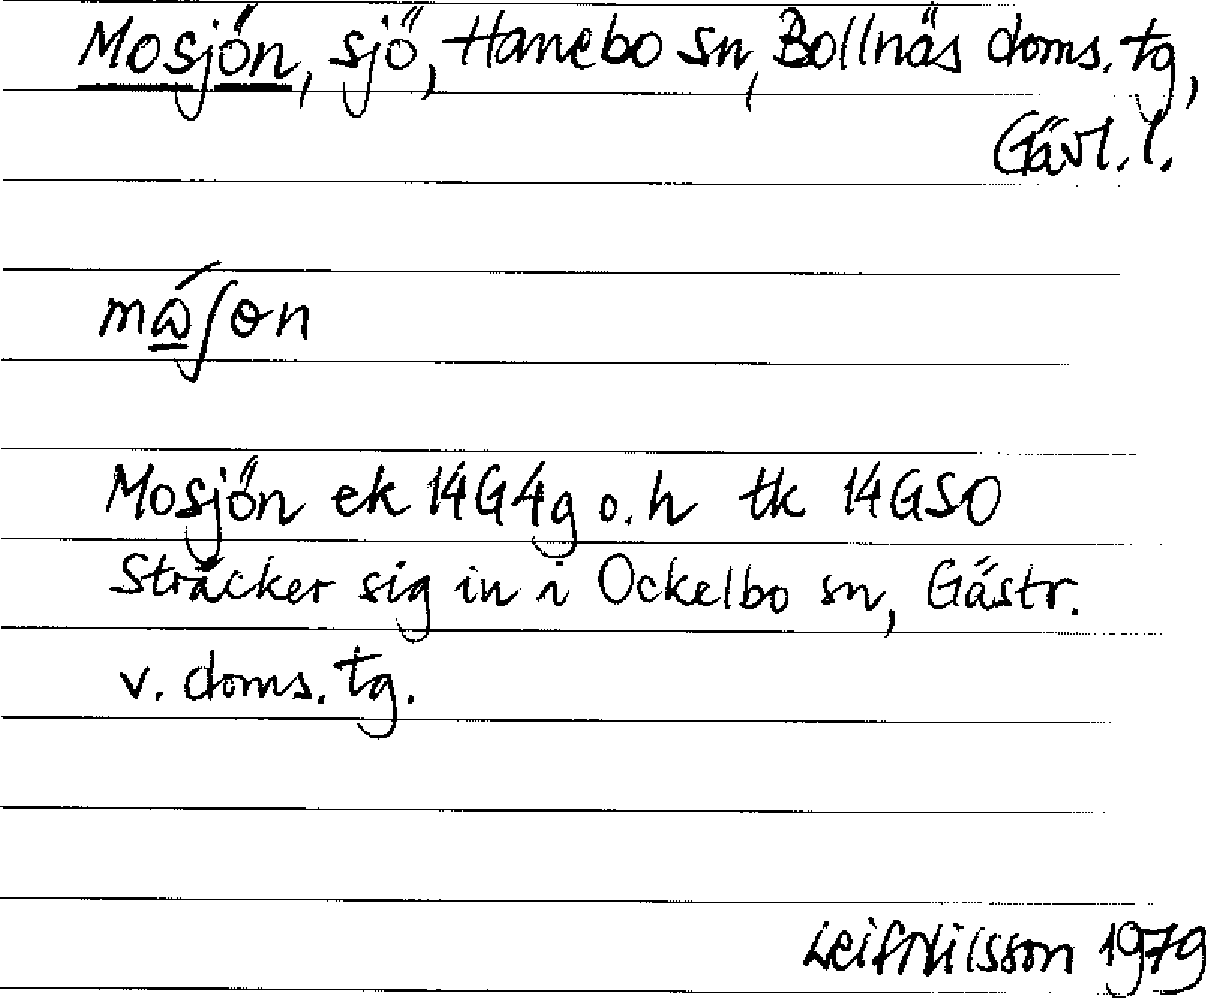 Mosjön, sjö, Hanebo sn, Bollnäs doms. tg,
Gävl. l.
Mosjön ek 14G4g o. h tk 14GSO
Sträcker sig in i Ockelbo sn, Gästr.
v. doms. tg.
Leif Nilsson 1979